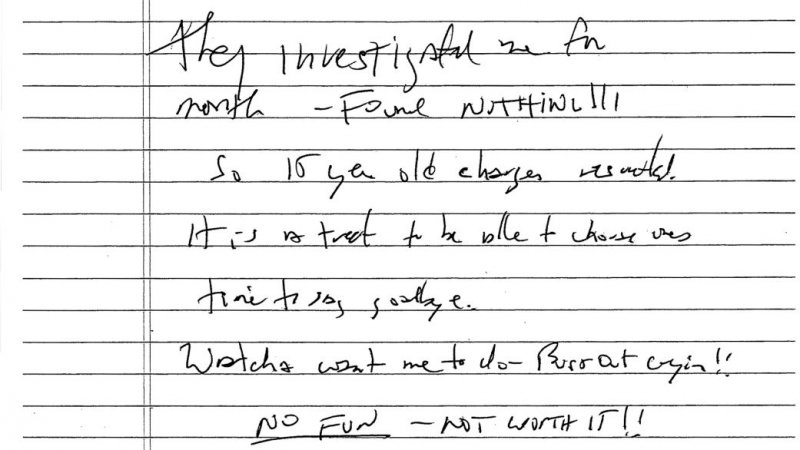 They investigated me for
month - Found NOTHING!!!
So year old charges
It is a treat to be able to choose ones
time to say goodbye.
Watcha want me to do - Bust out cryin!!
NO FUN - NOT WORTH IT!!